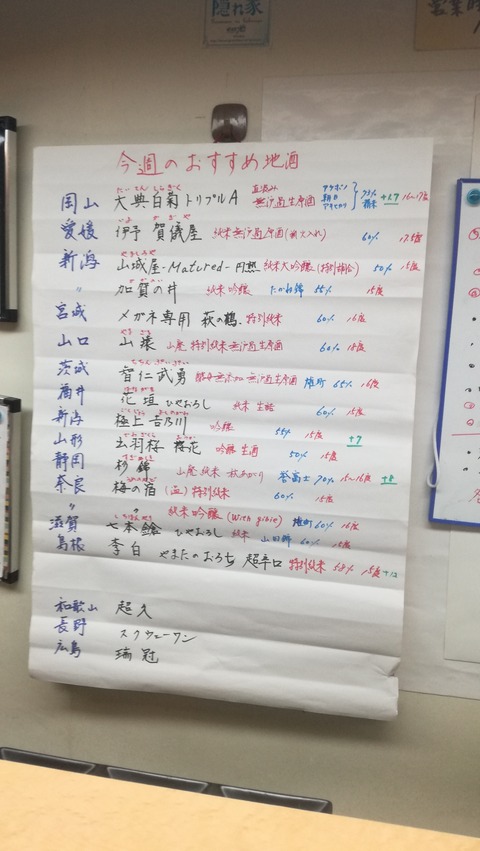 隠れ家
営業時
今週のおすすめ地酒
岡山 大典白菊 トリプルA 直汲み 無濾過生原酒 アケボノ 朝日 アキヒカリ 73% 精米 +1.9 16~17度
愛媛 伊予 賀儀屋 純米無濾過原酒(瓶火入れ) 60% 17.5度
新潟 山城屋-Matured-円熟 純米大吟醸(特別補糖) 50% 15度
〃 加賀の井 純米吟醸 たかね錦 55% 15度
宮城 メガネ専用 萩の鶴 特別純米 60% 16度
山口 山猿 山廃 特別純米無濾過生原酒 60% 18度
茨城 智仁武勇 無濾過生原酒 雄町 65% 16度
福井 花垣 ひやおろし 純米 生詰 60% 15度
新潟 極上吉乃川 吟醸 55% 15度 +7
山形 出羽桜 桜花 吟醸 生酒 50% 15度
静岡 杉錦 山廃 純米 秋あがり 誉富士 70% 15~16度 +8
奈良 梅の宿 (温) 特別純米 60% 15度
〃 〃 純米吟醸 (with gibie) 雄町 60% 16度
滋賀 七本鎗 ひやおろし 純米 山田錦 60% 15度
島根 李白 やまたのおろち 超辛口 特別純米 58% 15度 +12
和歌山 超久
長野 スクウェーワン
広島 瑞冠